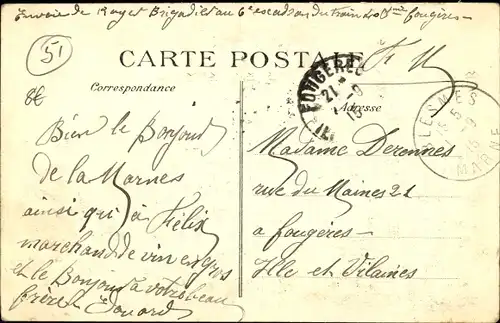 Envoie de Royer Brigadier au 6e escadron du train 40e Fougères
51
CARTE POSTALE
F M
Correspondance
Adresse
FOUGERES
21 -9
15
LESMES
5 -9
15
MARNE
8€
Bien le Bonjour
de la Marnes
ainsi qu'à Félix
marchand de vin en gros
et le Bonjour à votre beau
frère Edouard
Madame Derennes
rue du Maines 21
a fougères
Ille et Vilaines